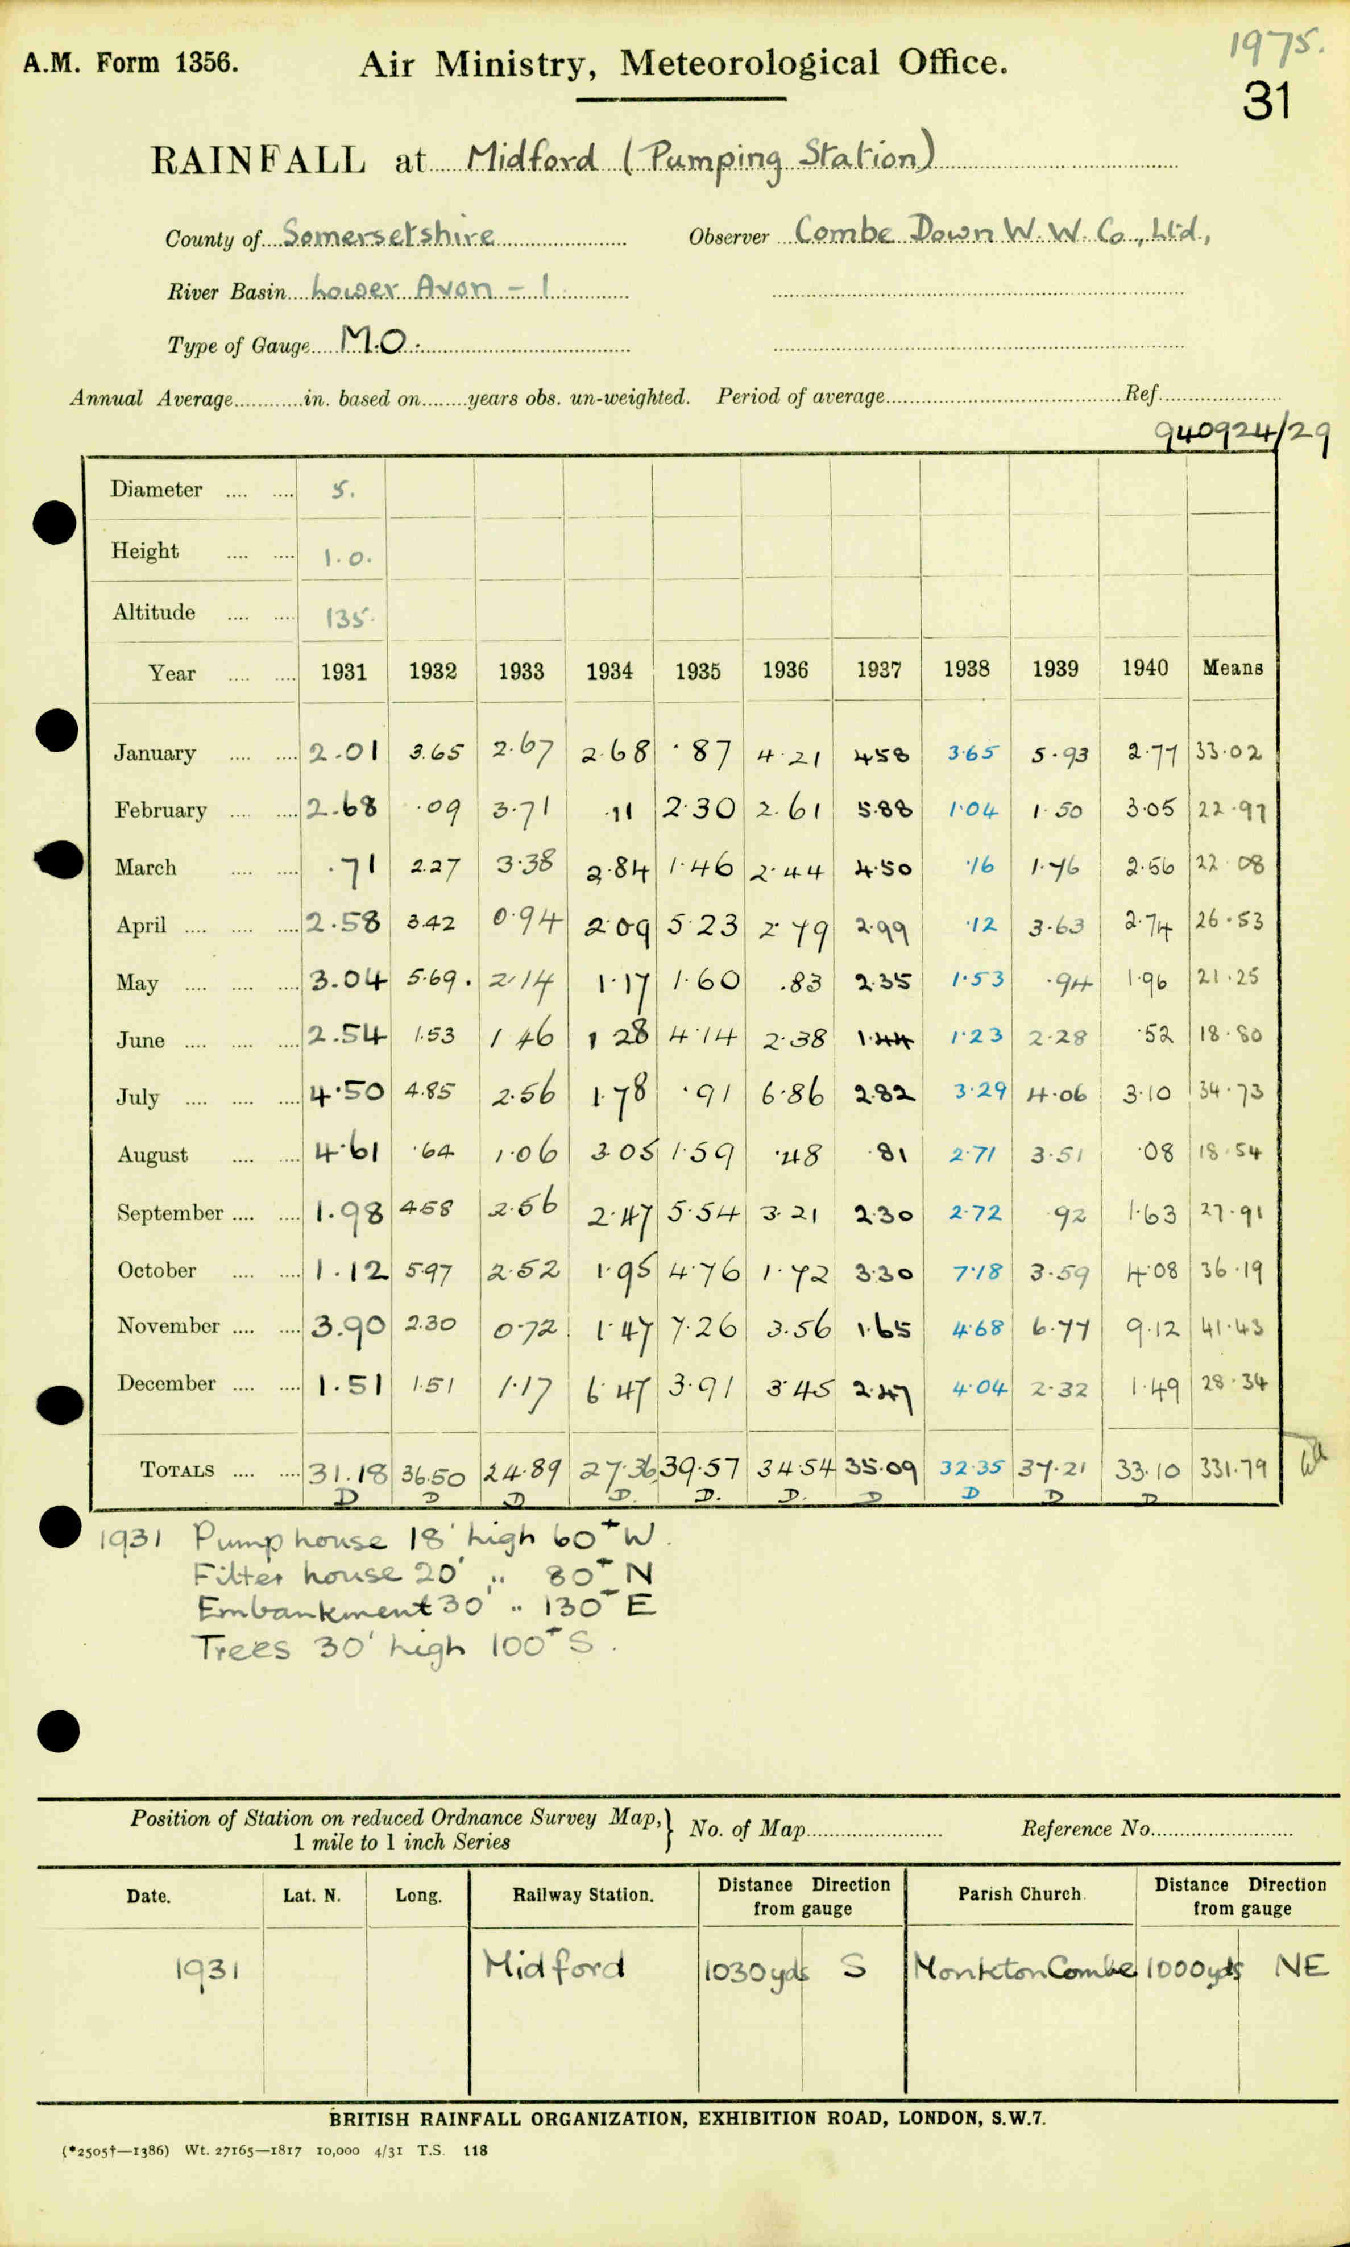 1975.
A.M. Form 1356. Air Ministry, Meteorological Office.
31
RAINFALL at Midford (Pumping Station)
County of Somersetshire Observer Combe Down W. W. Co., Ltd.,
River Basin Lower Avon - 1
Type of Gauge M.O.
Annual Average in. based on years obs. un-weighted. Period of average Ref.
940924/29
Diameter 5.
Height 1.0.
Altitude 135.
Year 1931 1932 1933 1934 1935 1936 1937 1938 1939 1940 Means
January 2.01 3.65 2.67 2.68 .87 4.21 4.58 3.65 5.93 2.77 33.02
February 2.68 .09 3.71 .11 2.30 2.61 5.88 1.04 1.50 3.05 22.97
March .71 2.27 3.38 2.84 1.46 2.44 4.50 .16 1.76 2.56 22.08
April 2.58 3.42 0.94 2.09 5.23 2.79 2.99 .12 3.63 2.74 26.53
May 3.04 5.69. 2.14 1.17 1.60 .83 2.35 1.53 .94 1.96 21.25
June 2.54 1.53 1.46 1.28 4.14 2.38 1.44 1.23 2.28 .52 18.80
July 4.50 4.85 2.56 1.78 .91 6.86 2.82 3.29 4.06 3.10 34.73
August 4.61 .64 1.06 3.05 1.59 .48 .81 2.71 3.51 .08 18.54
September 1.98 4.58 2.56 2.47 5.54 3.21 2.30 2.72 .92 1.63 27.91
October 1.12 5.97 2.52 1.95 4.76 1.72 3.30 7.18 3.59 4.08 36.19
November 3.90 2.30 0.72 1.47 7.26 3.56 1.65 4.68 6.77 9.12 41.43
December 1.51 1.51 1.17 6.47 3.91 3.45 2.47 4.04 2.32 1.49 28.34
TOTALS 31.18 36.50 24.89 27.36 39.57 34.54 35.09 32.35 37.21 33.10 331.79
D D D D. D. D. D D D D
1931 Pump house 18' high 60+ W.
Filter house 20' ,, 80+ N
Embankment 30' ,, 130+ E
Trees 30' high 100+ S.
Position of Station on reduced Ordnance Survey Map, } No. of Map Reference No.
1 mile to 1 inch Series
Date. Lat. N. Long. Railway Station. Distance Direction from gauge Parish Church. Distance Direction from gauge
1931 Midford 1030 yds S Monkton Combe 1000 yds NE
BRITISH RAINFALL ORGANIZATION, EXHIBITION ROAD, LONDON, S.W.7.
(*2505†—1386) Wt. 27165—1817 10,000 4/31 T.S. 118